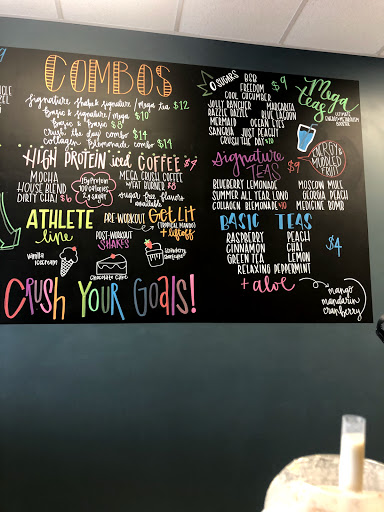 COMBOS
Signature Shake & Signature/Mega tea $12
Basic & Signature / Mega $10
Basic & Basic $8
Crush the day combo $14
Collagen Belmonade combo $14
HIGH PROTEIN iced COFFEE
MOCHA
HOUSE BLEND
DIRTY CHAI $6
15g Protein
100 calories
2g sugar
MEGA CRUSH COFFEE
w/FAT BURNER $8
sugar free flavors
available
ATHLETE
line
PRE-WORKOUT
Get Lit
(TROPICAL MANGO)
+ liftoff
POST-WORKOUT
SHAKES
vanilla
icecream
Chocolate Cake
strawberry
CRUSH YOUR GOALS!
0 SUGARS
BCB
FREEDOM
COOL CUCUMBER
JOLLY RANCHER
MARGARITA
RAZZLE DAZZLE
BLUE LAGOON
MERMAID
OCEAN EYES
SANGRIA
JUST PEACHY
CRUSH THE DAY
$9
Mega
teas
ULTIMATE
ENERGY & METABOLISM
BOOSTER
Signature
TEAS
$9
ENERGY &
MUDDLED
FRUIT
BLUEBERRY LEMONADE
MOSCOW MULE
SUMMER ALL YEAR LONG
GEORGIA PEACH
COLLAGEN BELMONADE
MEDICINE BOMB
BASIC TEAS
RASPBERRY
PEACH
CINNAMON
CHAI
GREEN TEA
LEMON
RELAXING PEPPERMINT
$4
+ aloe
mango
mandarin
cranberry